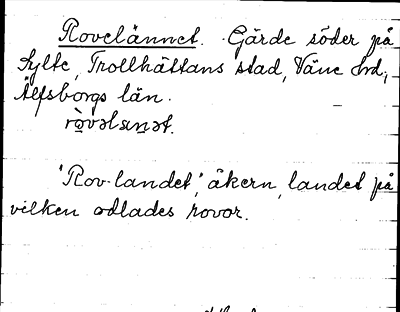 Rovelännet. Gärde söder på
Sylte, Trollhättans stad, Väne hd,
Älfsborgs län.
rò̤vəlαn̤ət.
'Rov-landet', åkern, landet på
vilken odlades rovor.